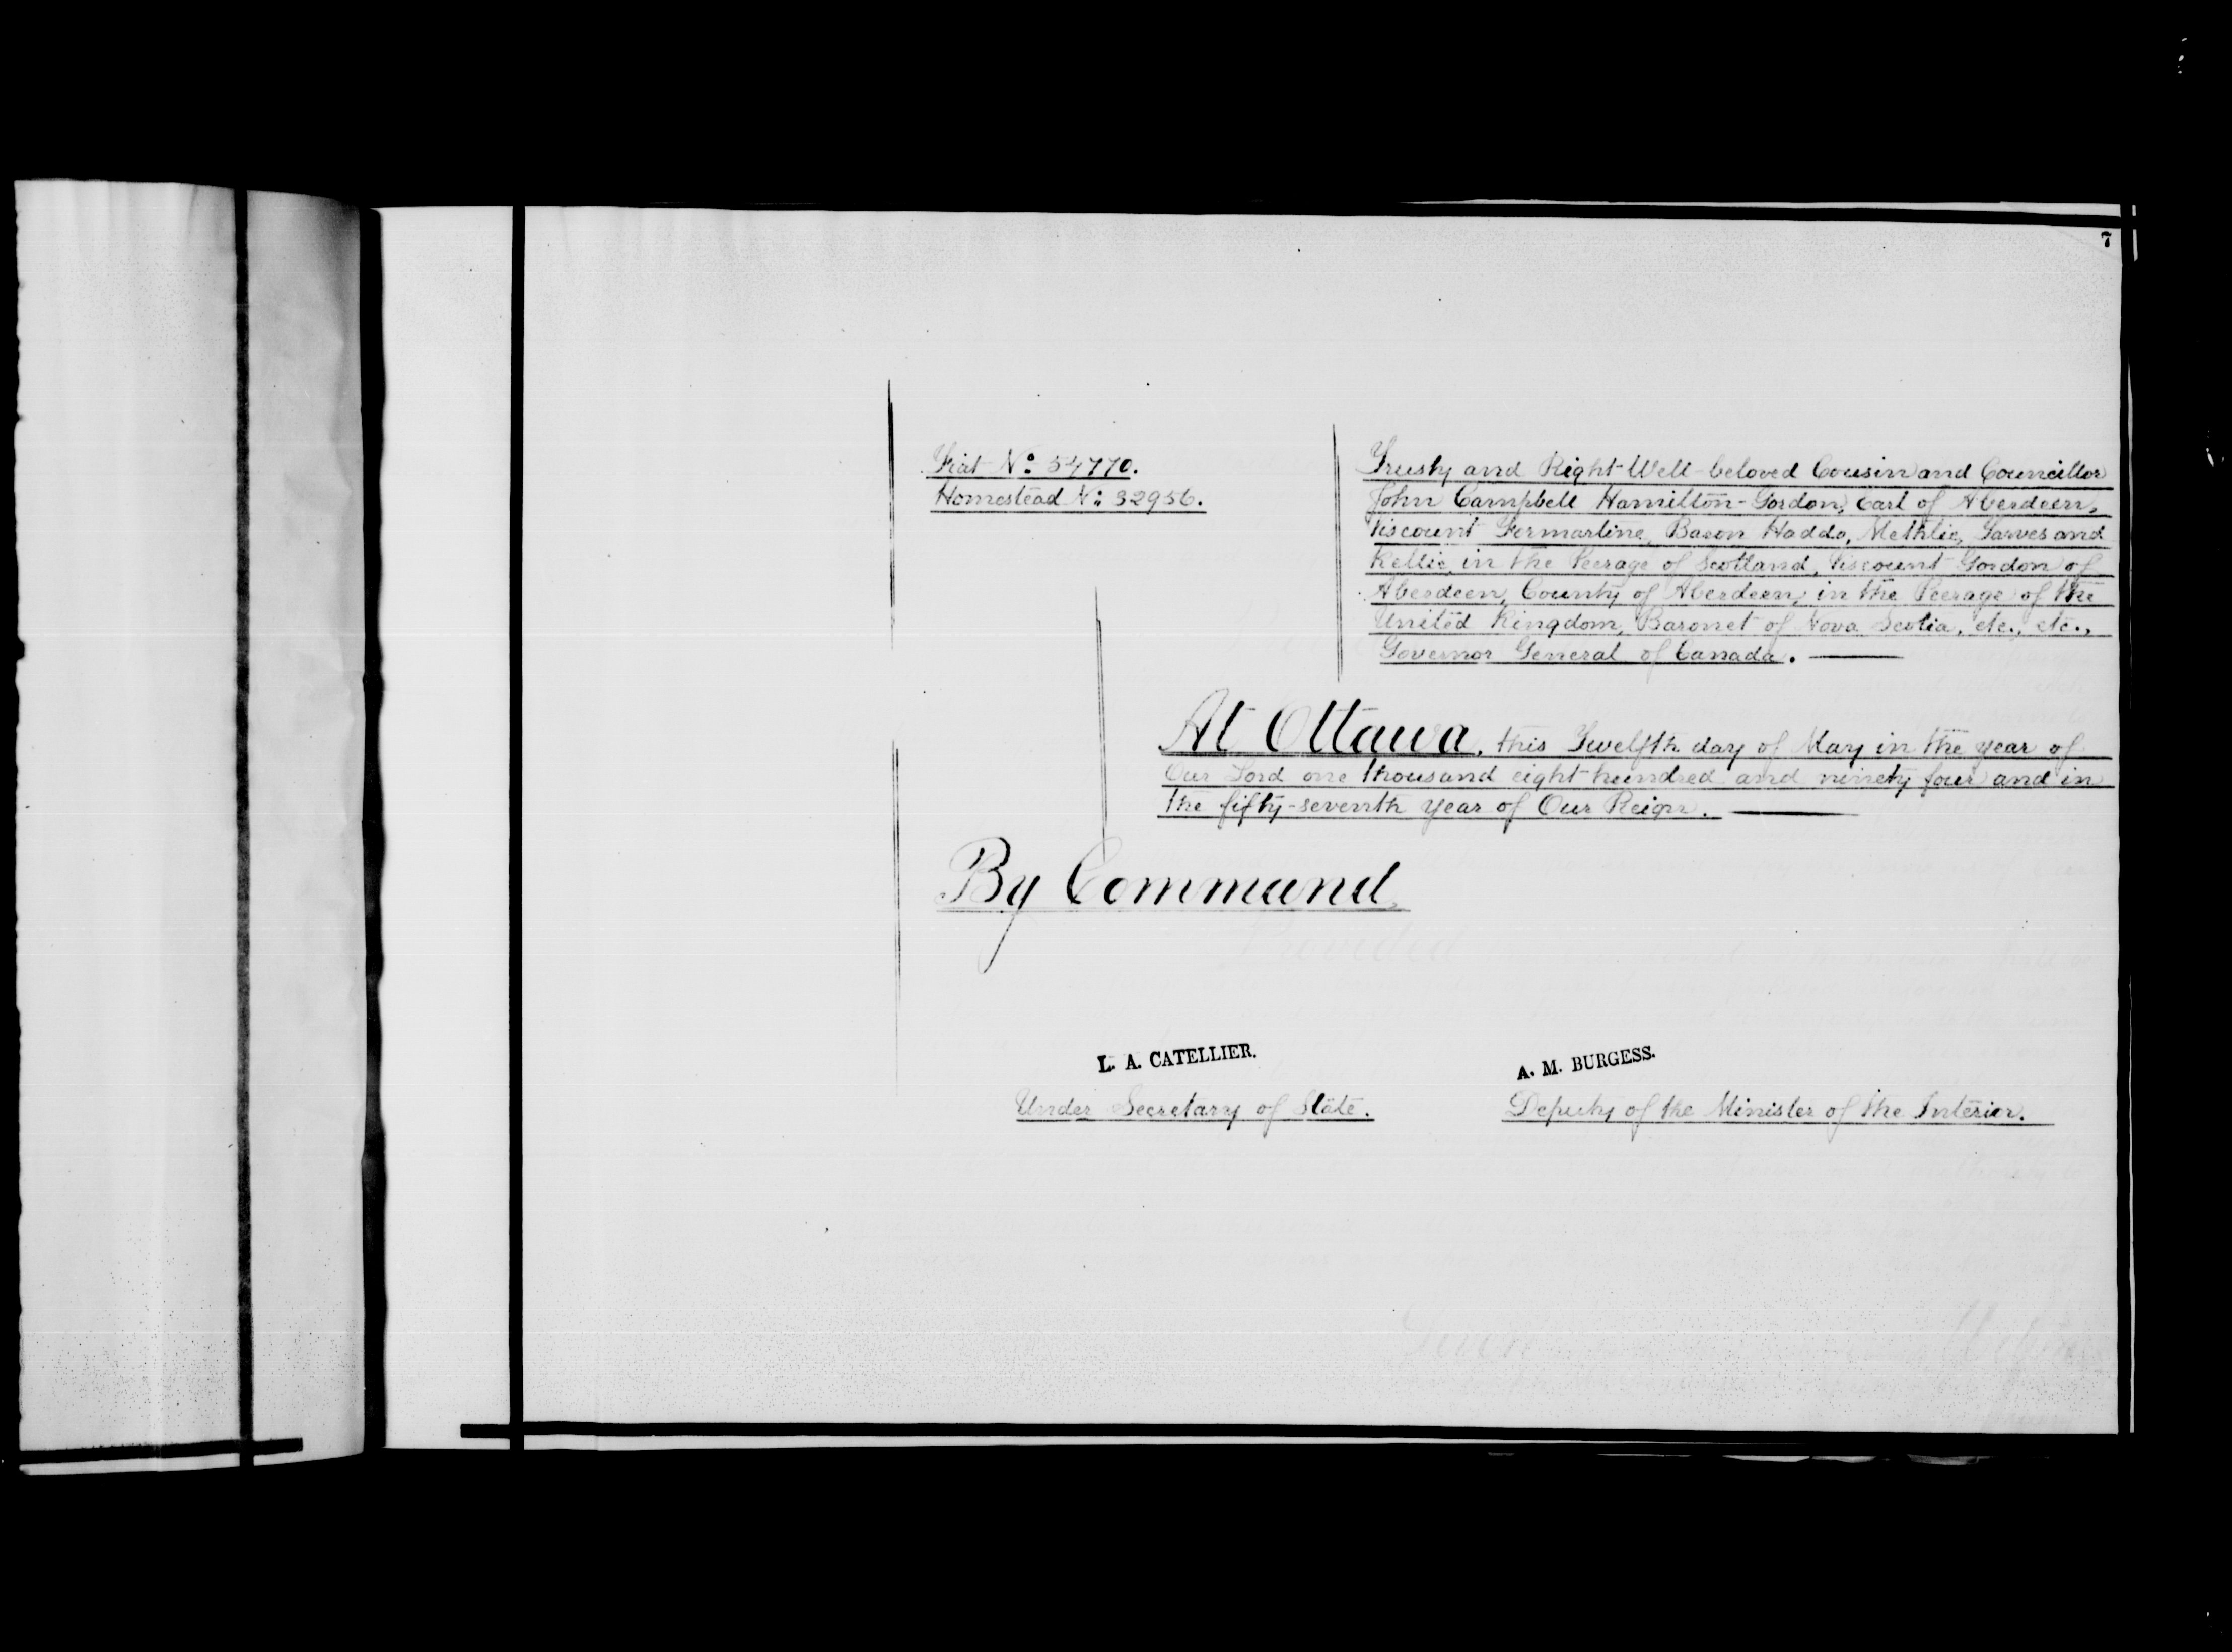 7
Fiat No. 54770.
Homestead No. 32956.
Trusty and Right Well-beloved Cousin and Councillor
John Campbell Hamilton-Gordon, Earl of Aberdeen,
Viscount Formartine, Baron Haddo, Methlic, Tarves and
Kellie, in the Peerage of Scotland, Viscount Gordon of
Aberdeen, County of Aberdeen, in the Peerage of the
United Kingdom, Baronet of Nova Scotia, etc., etc.,
Governor General of Canada.
At Ottawa, this Twelfth day of May in the year of
Our Lord one thousand eight hundred and ninety four and in
the fifty-seventh year of Our Reign.
By Command
L. A. CATELLIER.
Under Secretary of State.
A. M. BURGESS.
Deputy of the Minister of the Interior.